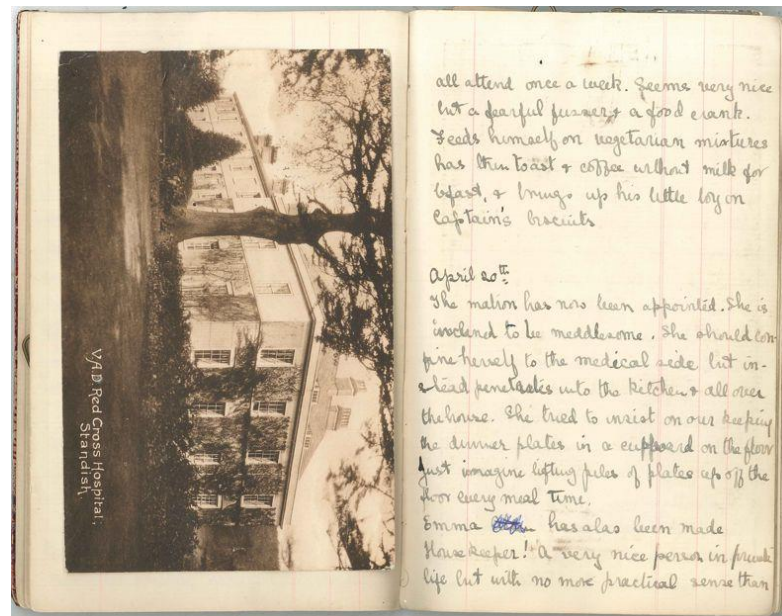 V.A.D. Red Cross Hospital,
Standish
all attend once a week. Seems very nice
but a fearful fusser & a food crank.
Feeds himself on vegetarian mixtures
has thin toast & coffee without milk for
bfast, & brings up his little boy on
Captain's biscuits
April 20th
The matron has now been appointed. She is
inclend to be meddlesome. She should con-
fine herself to the medical side but in-
stead penetrates into the kitchen & all over
the house. She tried to insist on our keeping
the dinner plates in a cupboard on the floor
Just imagine lifting piles of plates up off the
floor every meal time.
Emma has alas been made
Housekeeper! A very nice person in private
life but with no more practical sense than